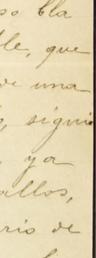 so bla
le, que
de una
s, sigui
, ya
allos,
rio de